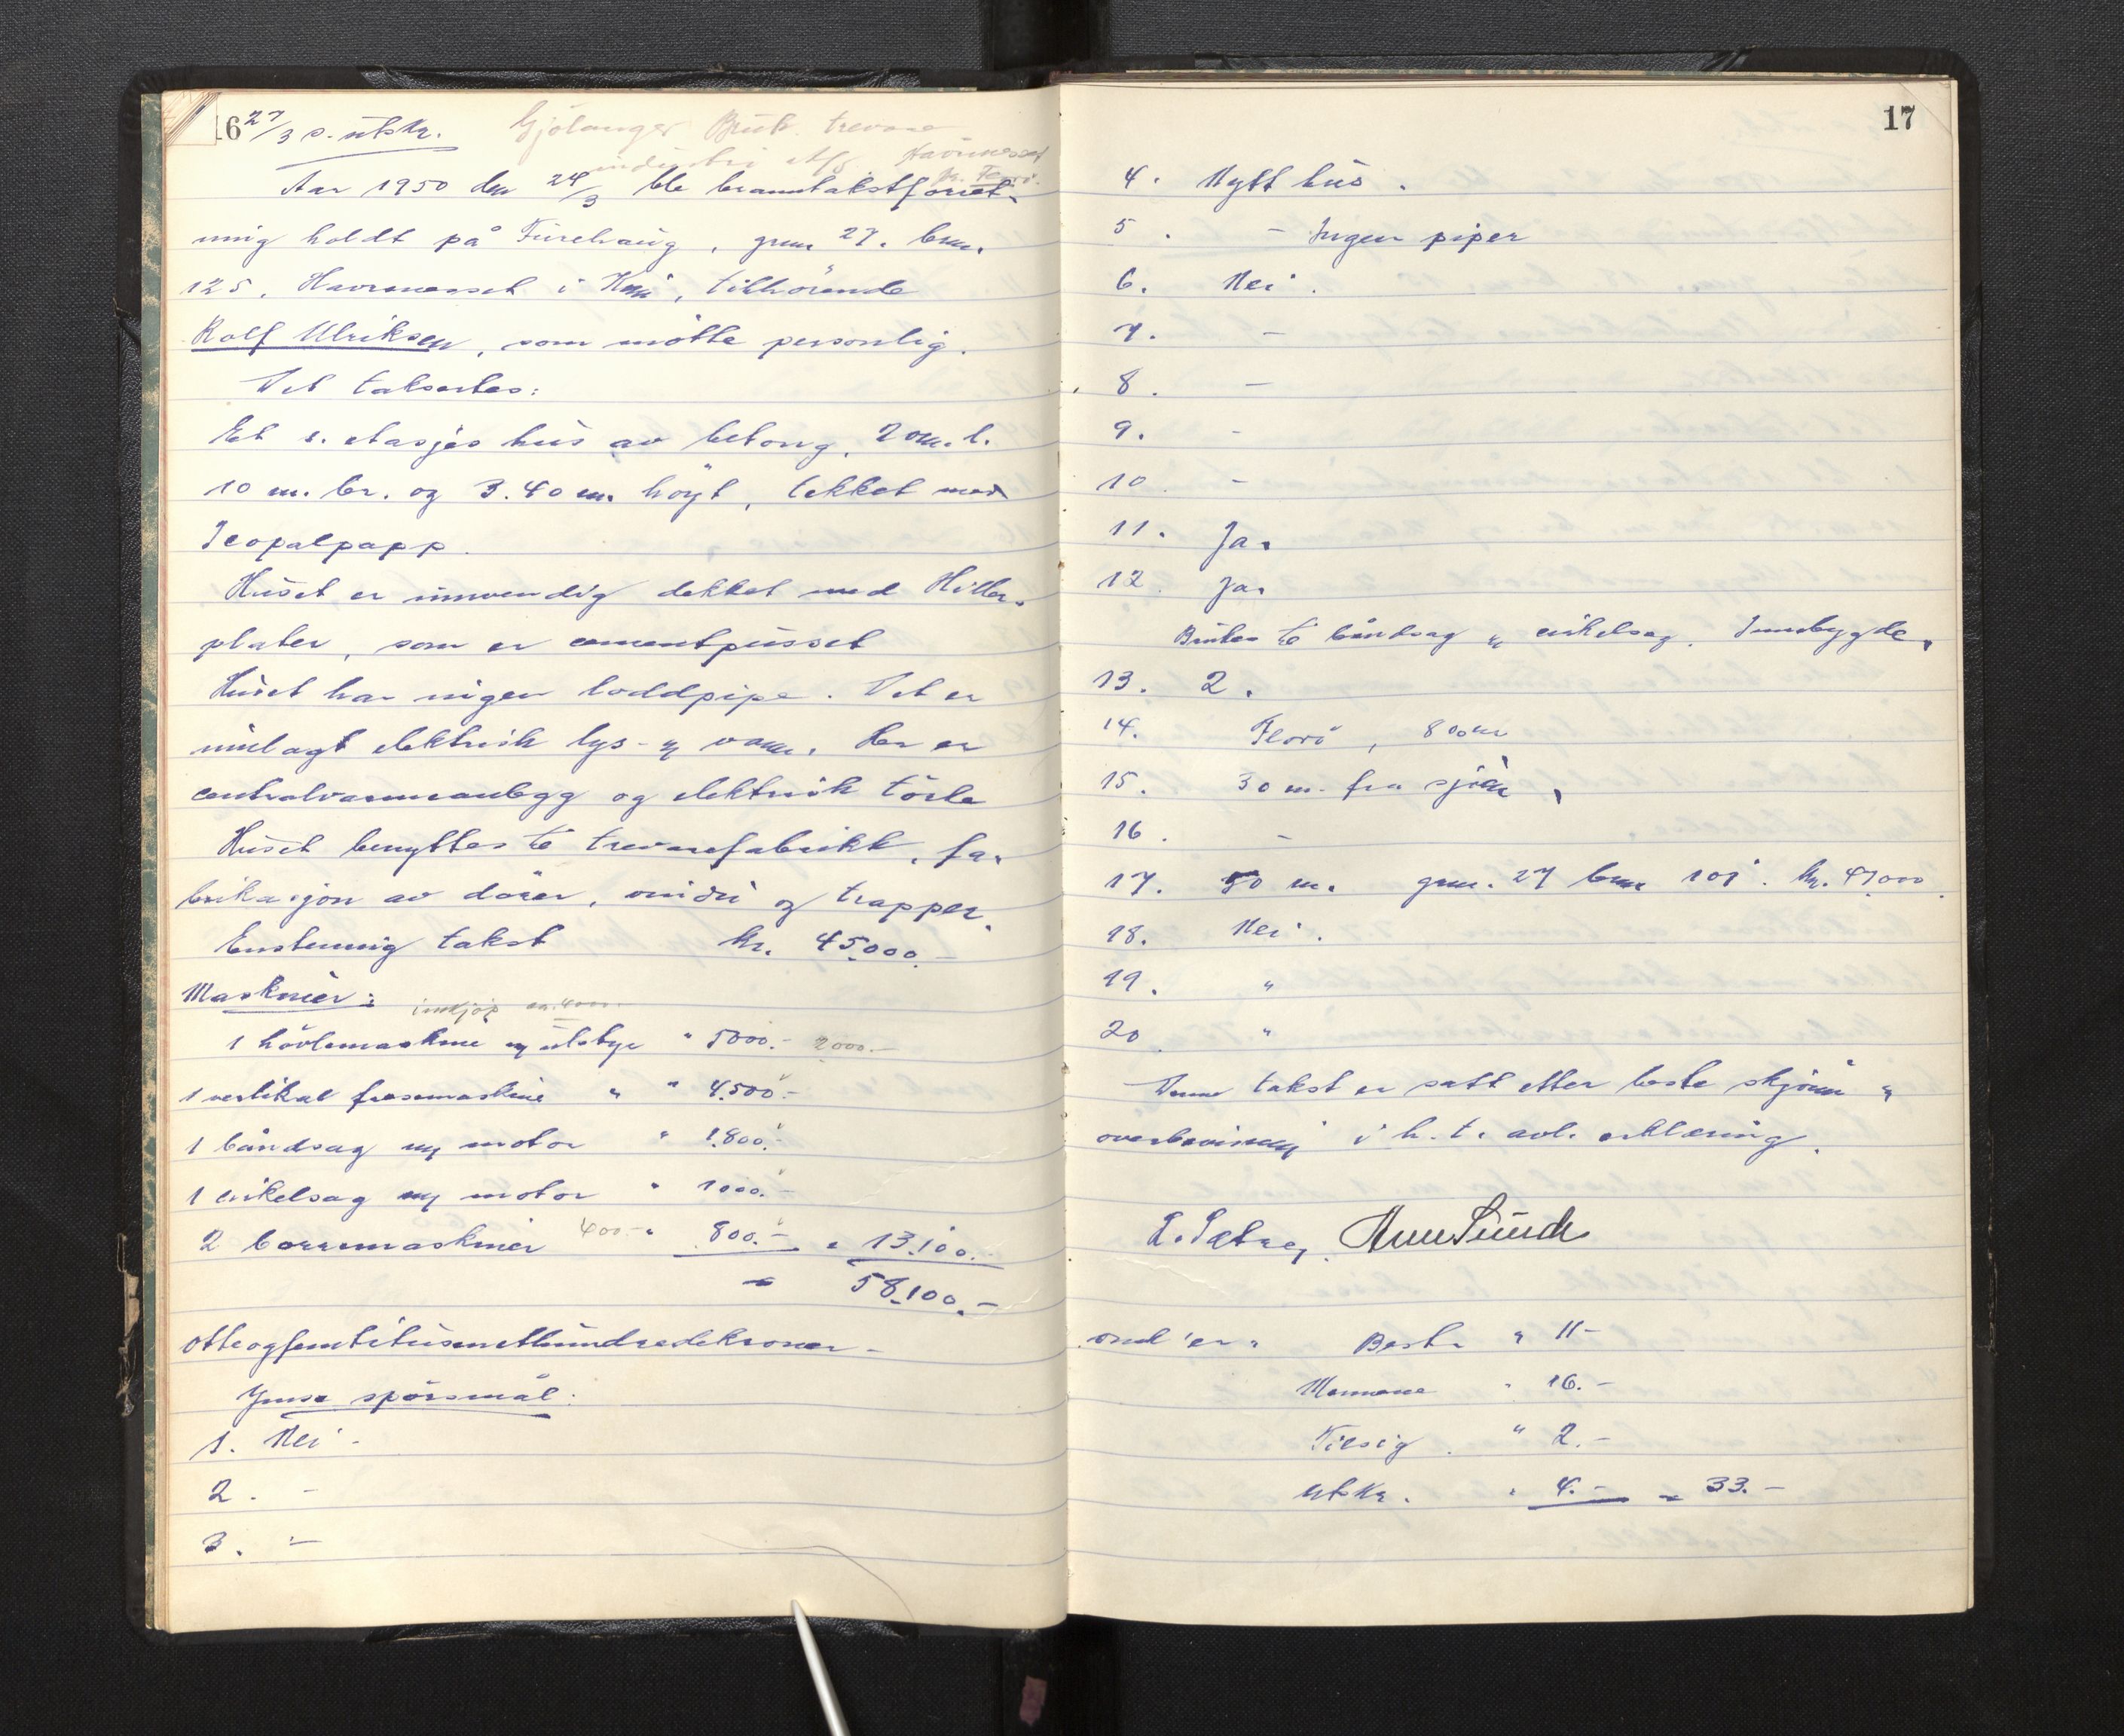 16 27/3 s. utskr. Gjölanger Bruk. trevare
industri A/S. Havrenesset
pr. Florö.
Aar 1950 den 24/3 ble branntakstforret-
ning holdt på Furehaug, gnr. 27. bnr.
125, Havrenesset i Kinn, tilhörende
Rolf Ulriksen, som mötte personlig.
Det taksertes:
Et 1. etasjes hus av betong, 20 m. l.
10 m. br. og 3.40 m. höyt, tekket med
Icopalpapp.
Huset er innvendig dekket med Hiller-
plater, som er cementpusset
Huset har ingen loddpipe. Det er
innlagt elektrisk lys- og varm. Her er
centralvarmeanlegg og elektrisk törke
Huset benyttes til trevarefabrikk, fa-
brikasjon av dörer, vindu og trapper.
Enstemmig takst kr. 45.000.-
Maskiner: innkjöp ca. 4000.
1 hövlemaskine og utstyr " 5000.- 2000.-
1 vertikal fresemaskine " " 4.500.-
1 båndsag og motor " 1.800.-
1 cirkelsag og motor " 1000.-
2 borremaskiner 400.- " 800.- " 13.100.-
" 58.100.-
Otteogfemtitusenetthundredekroner-
Ymse spörsmål:
1. Nei -
2. -
3. -
17
4. Nytt hus.
5. - Ingen piper
6. Nei.
7. -
8. -
9. -
10 -
11. Ja.
12 Ja.
Brukes til båndsag og cirkelsag. Innebygde.
13. 2.
14. Florö, 800 m
15. 30 m. fra sjöen.
16. -
17. 50 m. gnr. 27 bnr 101. kr. 47.000.
18. Nei.
19. "
20 "
Denne takst er satt etter beste skjönn og
overbevisning i h. t. avl. erklæring.
L. Sætrey.
Bestr " 11-
Mennene " 16.-
Tilsig. " 2.-
Utskr. " 4.- = 33.-